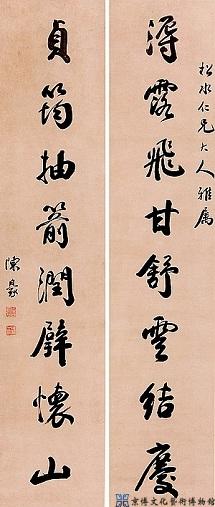 松水仁兄大人雅属
湑露飛甘舒雲結慶
貞筠抽箭潤璧懷山
陳豪
京傳文化藝術博物館